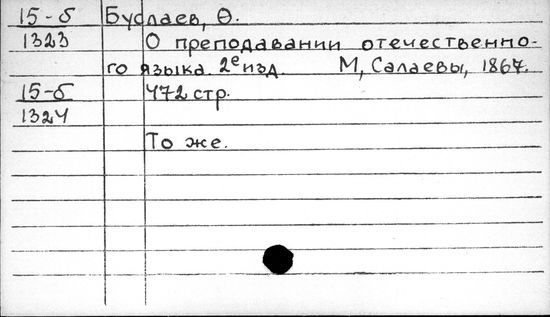 15-б Буслаев, Ѳ.
1323 О преподавании отечественно-
го языка. 2е изд. М, Салаевы, 1867.
15-б 472 стр.
1324
То же.